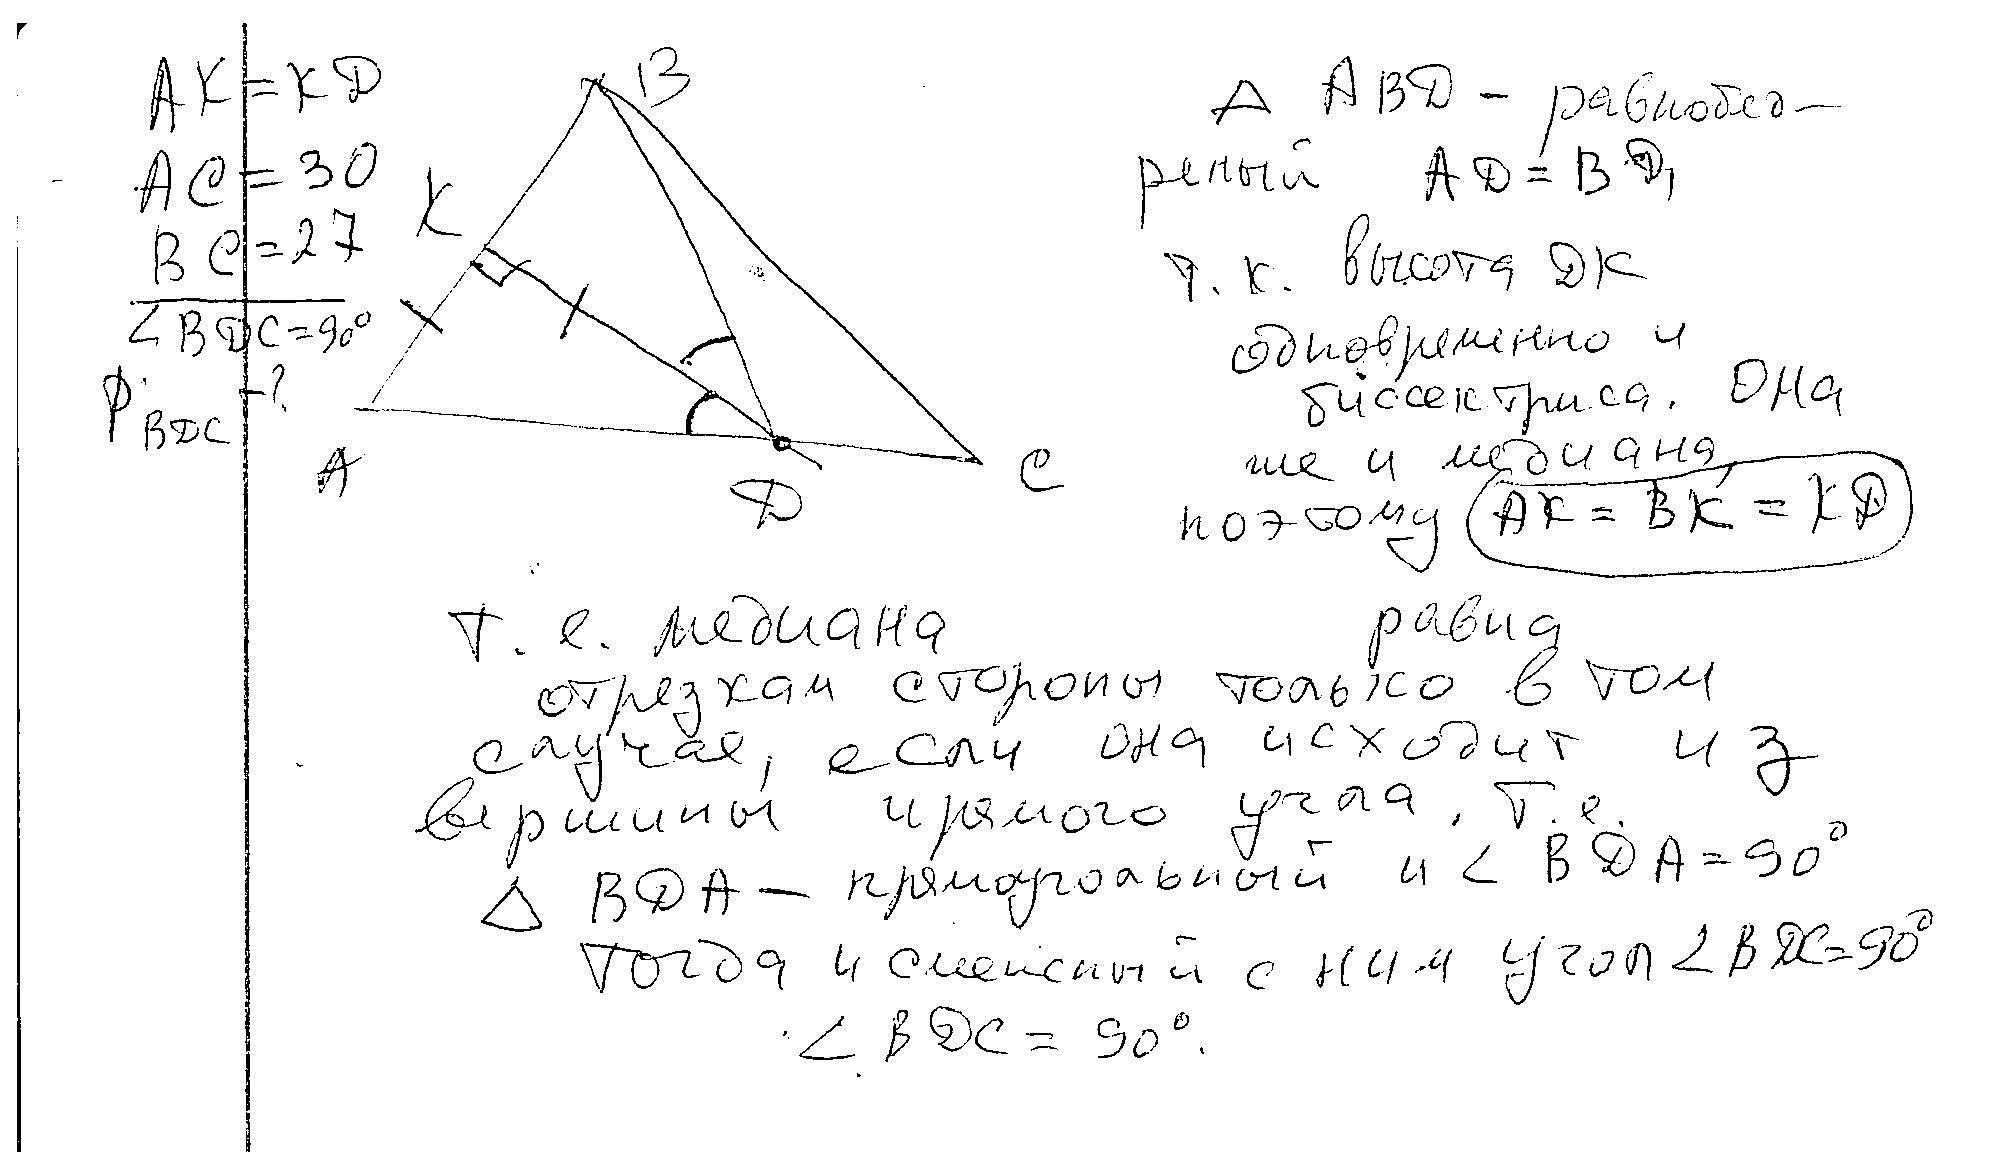 AK = KD
AC = 30
BC = 27
∠BDC = 90°
P BDC - ?
B
K
A
D
C
△ ABD - равнобед-
реный AD = BD,
т.к. высота DK
одновременно и
биссектриса. Она
же и медиана,
поэтому AK = BK = KD
т.е. медиана равна
отрезкам стороны только в том
случае, если она исходит из
вершины прямого угла. Т.е.
△ BDA - прямоугольный и ∠BDA = 90°
тогда и смежный с ним угол ∠BDC = 90°
∠BDC = 90°.